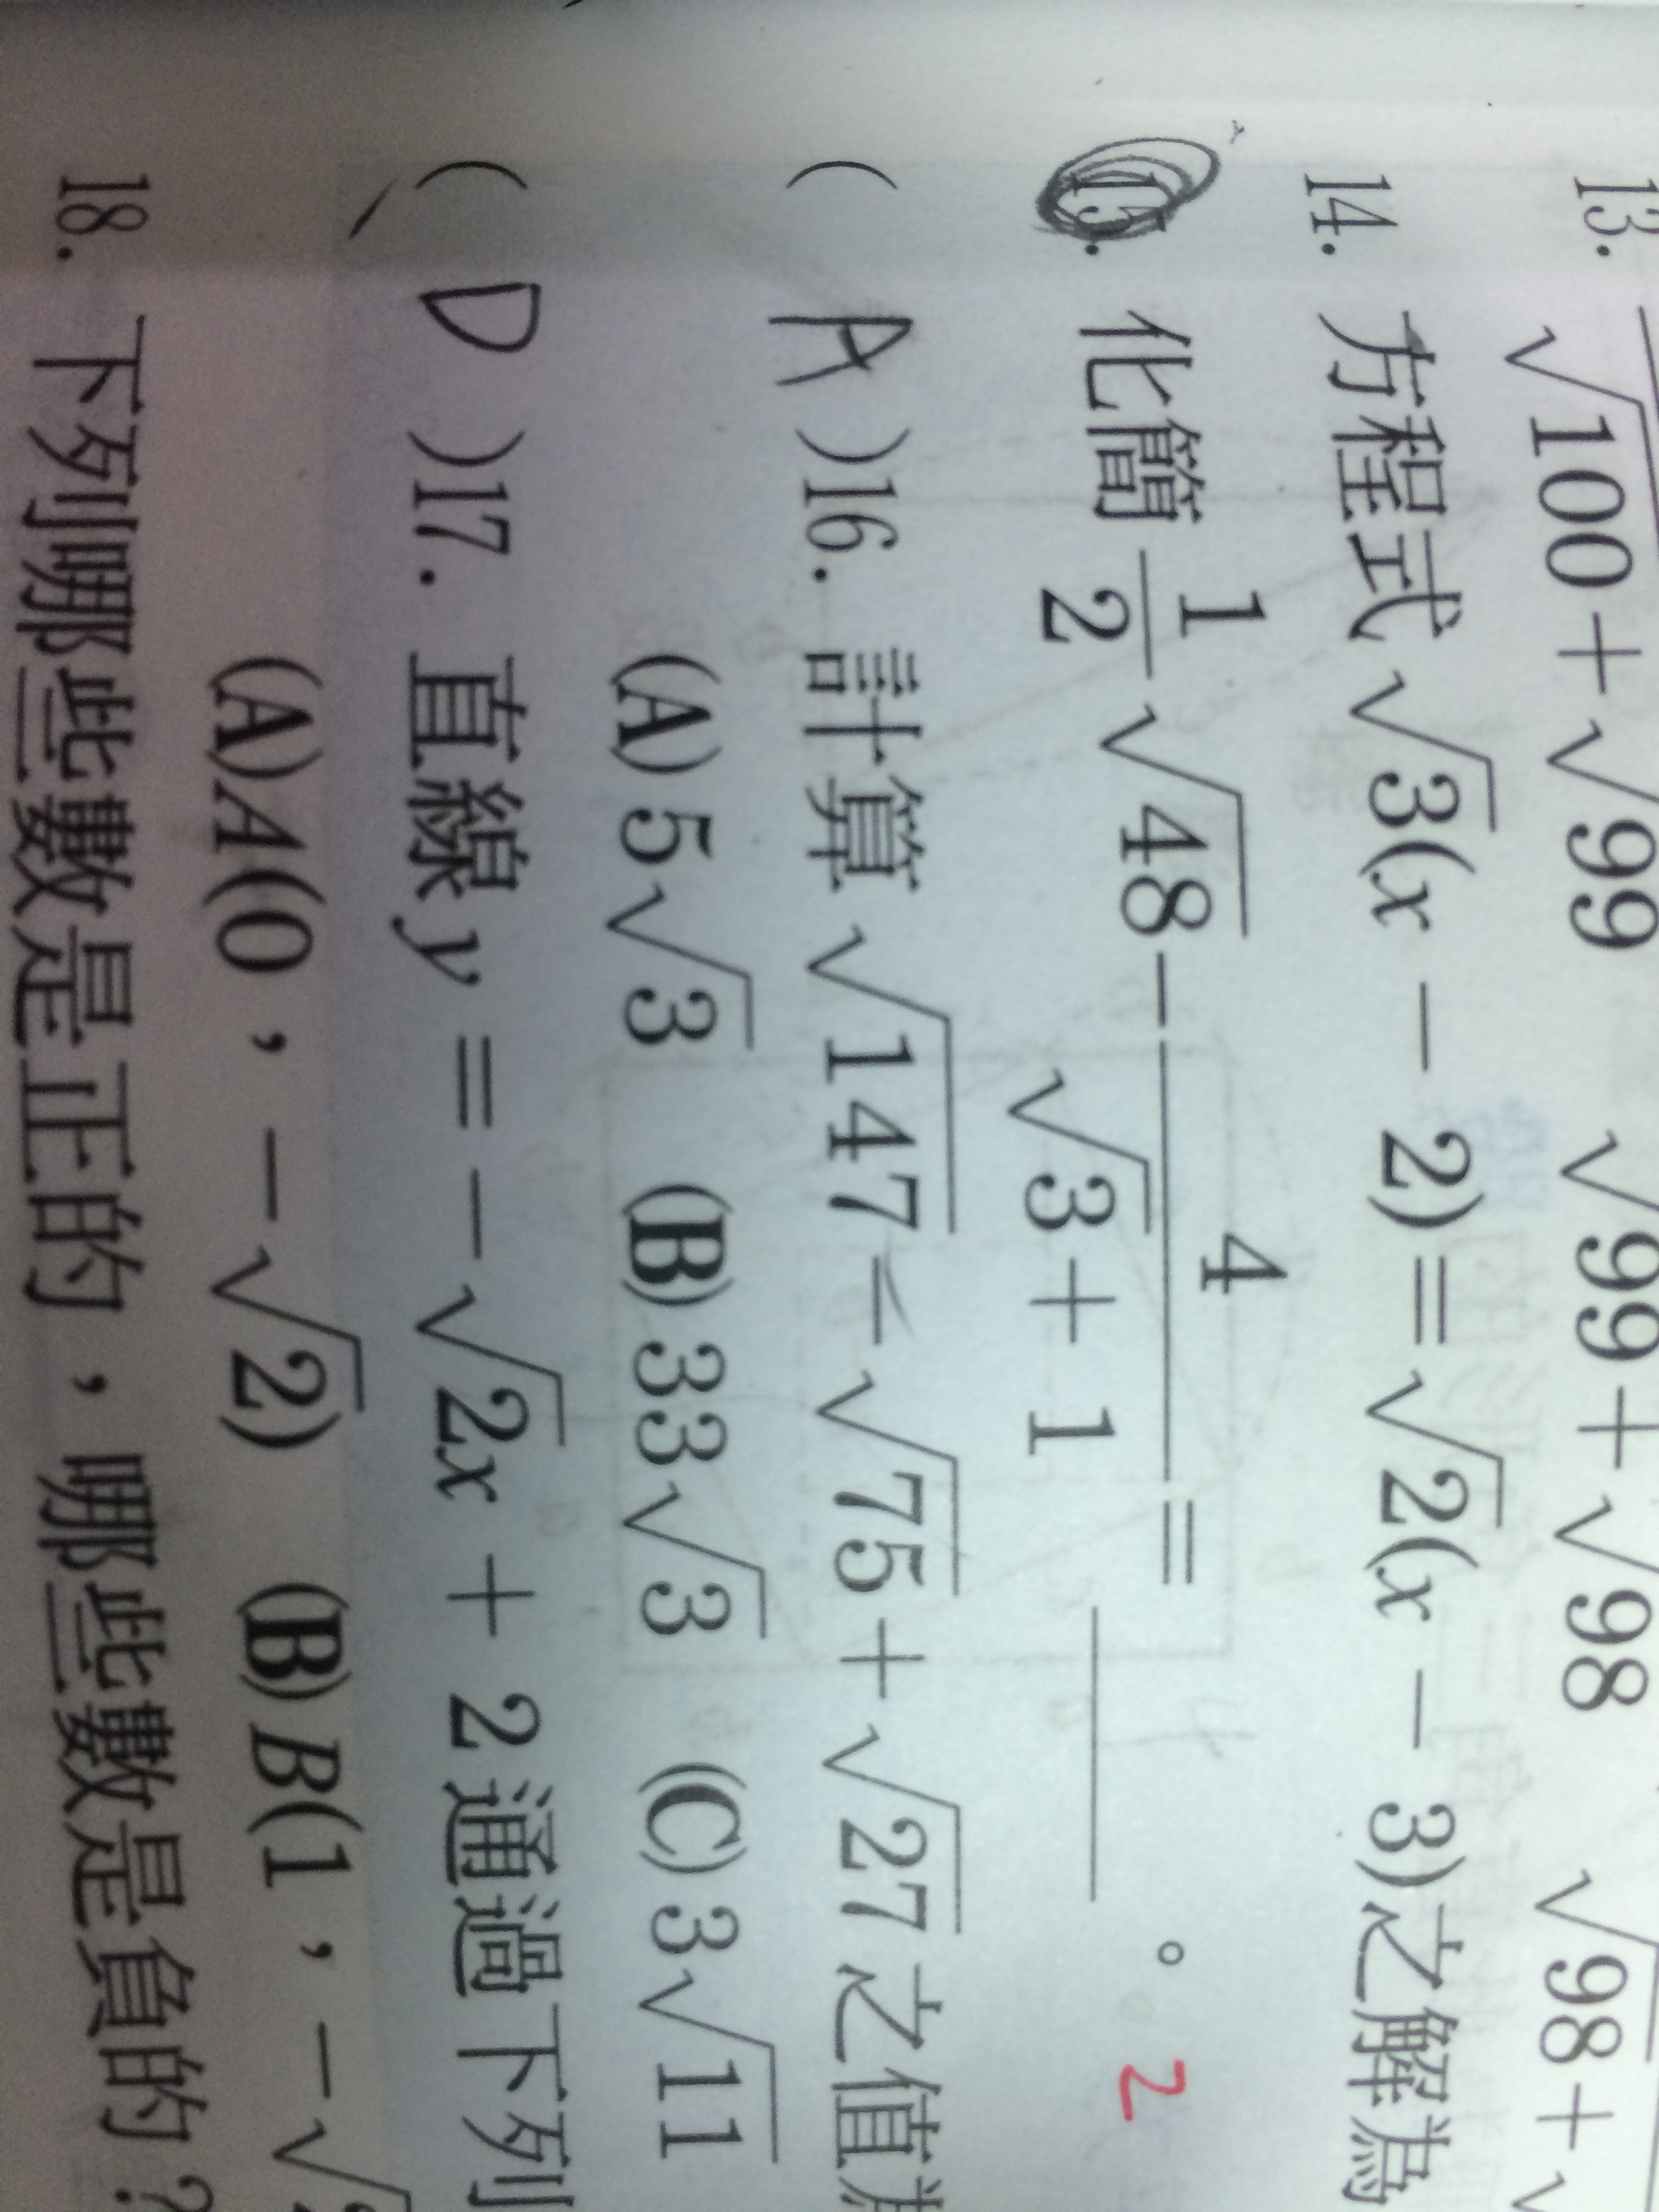 13. √100+√99 √99+√98 √98+√
14. 方程式√3(x-2)=√2(x-3)之解為
15. 化簡 1/2 √48 - 4/(√3+1) = ______。2
( A )16. 計算√147-√75+√27之值
(A) 5√3 (B) 33√3 (C) 3√11
( D )17. 直線y=-√2x+2通過下列
(A) A(0,-√2) (B) B(1,-√
18. 下列哪些數是正的,哪些數是負的?